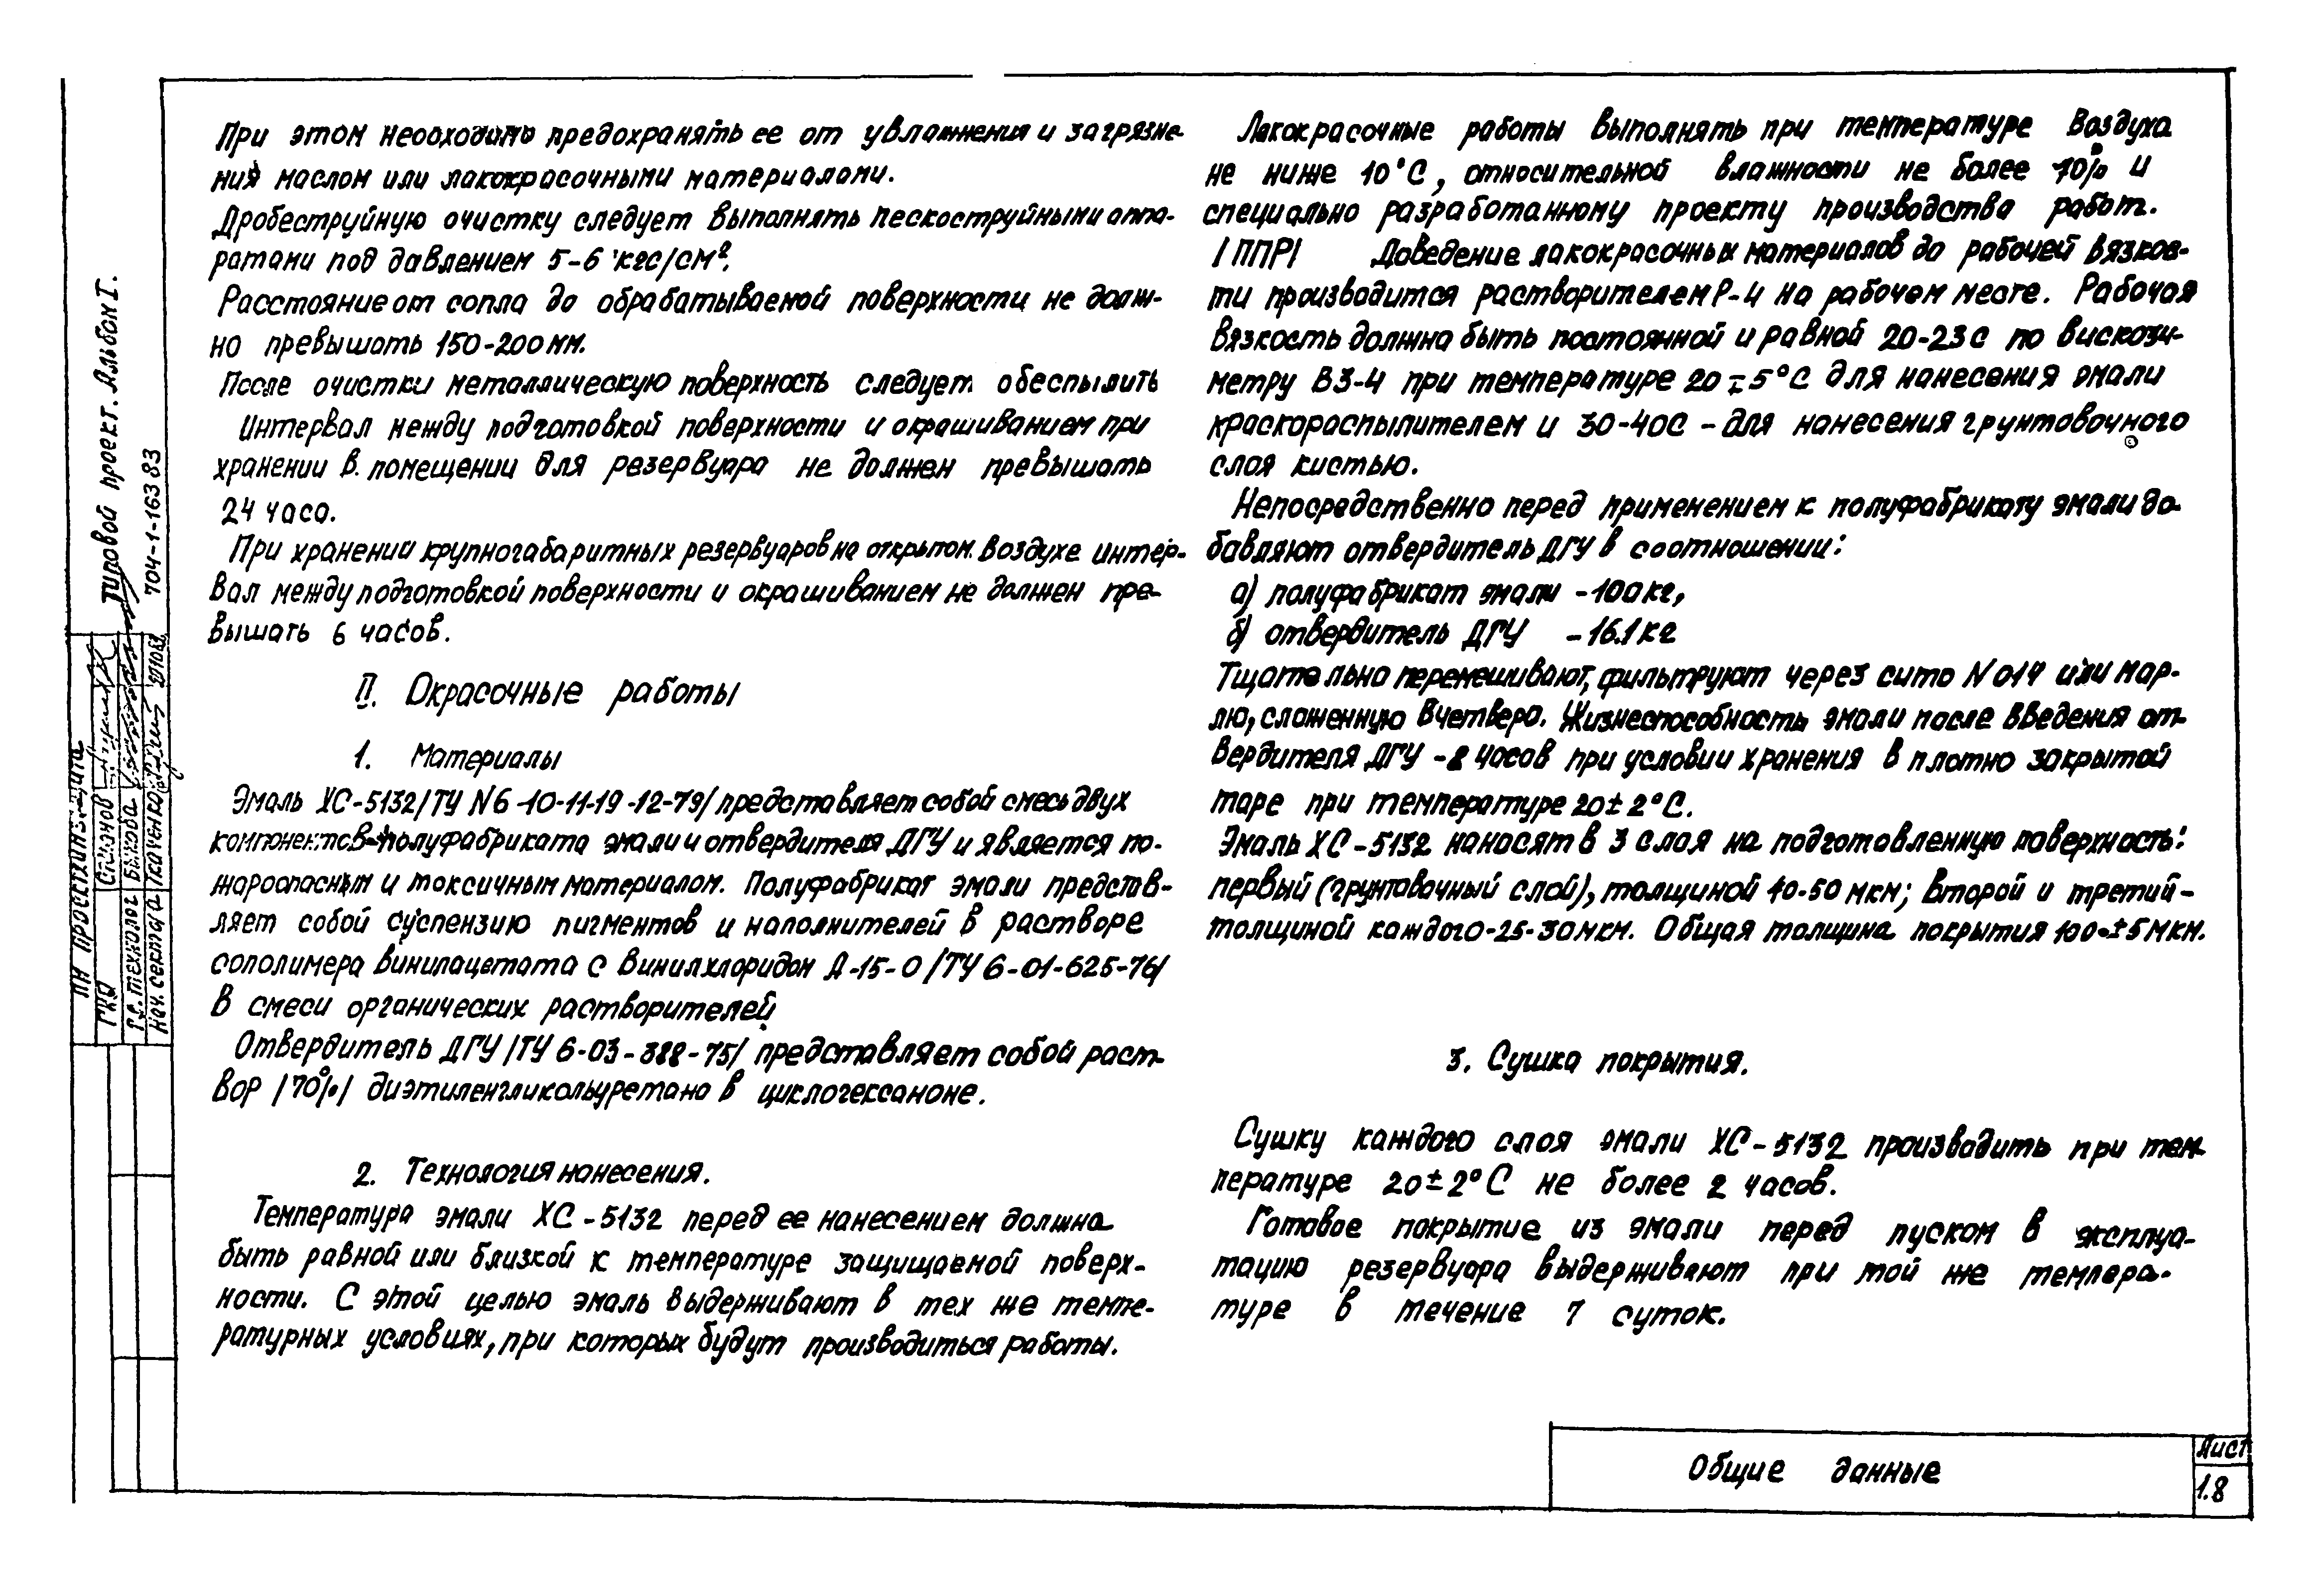 При этом необходимо предохранять ее от увлажнения и загрязне-
ния маслом или лакокрасочными материалами.
Дробеструйную очистку следует выполнять пескоструйными аппа-
ратами под давлением 5-6 кгс/см².
Расстояние от сопла до обрабатываемой поверхности не долж-
но превышать 150-200 мм.
После очистки металлическую поверхность следует обеспылить
Интервал между подготовкой поверхности и окрашиванием при
хранении в помещении для резервуара не должен превышать
24 часа.
При хранении крупногабаритных резервуаров на открытом воздухе интер-
вал между подготовкой поверхности и окрашиванием не должен пре-
вышать 6 часов.
II. Окрасочные работы
1. Материалы
Эмаль ХС-5132 /ТУ N6-10-11-19-12-79/ представляет собой смесь двух
компонентов-полуфабриката эмали и отвердителя ДГУ и является по-
жароопасным и токсичным материалом. Полуфабрикат эмали представ-
ляет собой суспензию пигментов и наполнителей в растворе
сополимера винилацетата с винилхлоридом А-15-0 /ТУ 6-01-625-76/
в смеси органических растворителей.
Отвердитель ДГУ /ТУ 6-03-388-75/ представляет собой раст-
вор /70%/ диэтиленгликольуретана в циклогексаноне.
2. Технология нанесения.
Температура эмали ХС-5132 перед ее нанесением должна
быть равной или близкой к температуре защищаемой поверх-
ности. С этой целью эмаль выдерживают в тех же темпе-
ратурных условиях, при которых будут производиться работы.
Лакокрасочные работы выполнять при температуре воздуха
не ниже 10°С, относительной влажности не более 70% и
специально разработанному проекту производства работ.
/ППР/ Доведение лакокрасочных материалов до рабочей вязкос-
ти производится растворителем Р-4 на рабочем месте. Рабочая
вязкость должна быть постоянной и равной 20-23с по вискози-
метру ВЗ-4 при температуре 20±5°С для нанесения эмали
краскораспылителем и 30-40с - для нанесения грунтовочного
слоя кистью.
Непосредственно перед применением к полуфабрикату эмали до-
бавляют отвердитель ДГУ в соотношении:
а) полуфабрикат эмали -100кг,
б) отвердитель ДГУ -16.1кг
Тщательно перемешивают, фильтруют через сито N 014 или мар-
лю, сложенную вчетверо. Жизнеспособность эмали после введения от-
вердителя ДГУ -8 часов при условии хранения в плотно закрытой
таре при температуре 20±2°С.
Эмаль ХС-5132 наносят в 3 слоя на подготовленную поверхность:
первый (грунтовочный слой), толщиной 40-50 мкм; второй и третий-
толщиной каждого-25-30мкм. Общая толщина покрытия 100±5мкм.
3. Сушка покрытия.
Сушку каждого слоя эмали ХС-5132 производить при тем-
пературе 20±2°С не более 2 часов.
Готовое покрытие из эмали перед пуском в эксплуа-
тацию резервуара выдерживают при той же темпера-
туре в течение 7 суток.
Общие данные
Лист
1.8
Типовой проект. Альбом I.
704-1-163 83
ПИ Проектхимзащита
ГИП
Гл. технолог Быкова
Нач. сектора Ткаченко